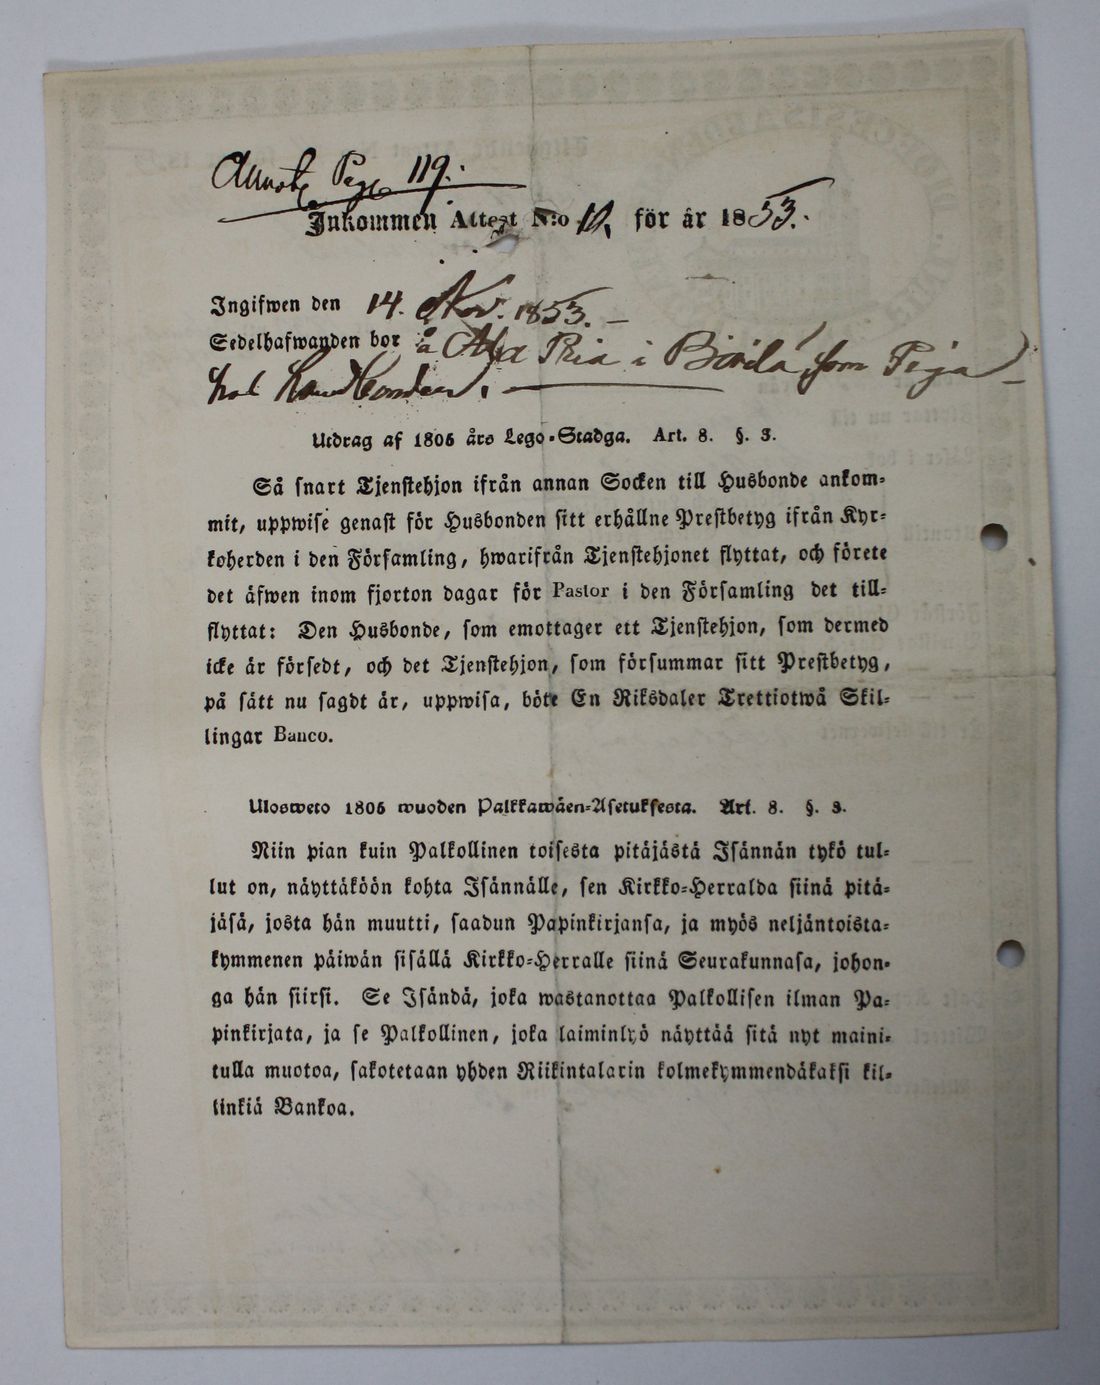 Annot. Page 119.
Inkommen Attest N:o 12. för år 1853.
Ingifwen den 14. Nov. 1853.
Sedelhafwanden bor å i som Piga
hos Landbonden.
Utdrag af 1805 års Lego-Stadga. Art. 8. §. 3.
Så snart Tjenstehjon ifrån annan Socken till Husbonde ankom-
mit, uppwise genast för Husbonden sitt erhållne Prestbetyg ifrån Kyr-
koherden i den Församling, hwarifrån Tjenstehjonet flyttat, och förete
det äfwen inom fjorton dagar för Pastor i den Församling det till-
flyttat: Den Husbonde, som emottager ett Tjenstehjon, som dermed
icke är försedt, och det Tjenstehjon, som försummar sitt Prestbetyg,
på sätt nu sagdt är, uppwisa, böte En Riksdaler Trettiotwå Skil-
lingar Banco.
Ulosweto 1805 wuoden Palkkawäen-Asetuksesta. Art. 8. §. 3.
Niin pian kuin Palkollinen toisesta pitäjästä Isännän tykö tul-
lut on, näyttäköön kohta Isännälle, sen Kirkko-Herralda siinä pitä-
jäsä, josta hän muutti, saadun Papinkirjansa, ja myös neljäntoista-
kymmenen päiwän sisällä Kirkko-Herralle siinä Seurakunnasa, johon-
ga hän siirsi. Se Isändä, joka wastanottaa Palkollisen ilman Pa-
pinkirjata, ja se Palkollinen, joka laiminlyö näyttää sitä nyt maini-
tulla muotoa, sakotetaan yhden Riikintalarin kolmekymmendäkaksi kil-
linkiä Bankoa.